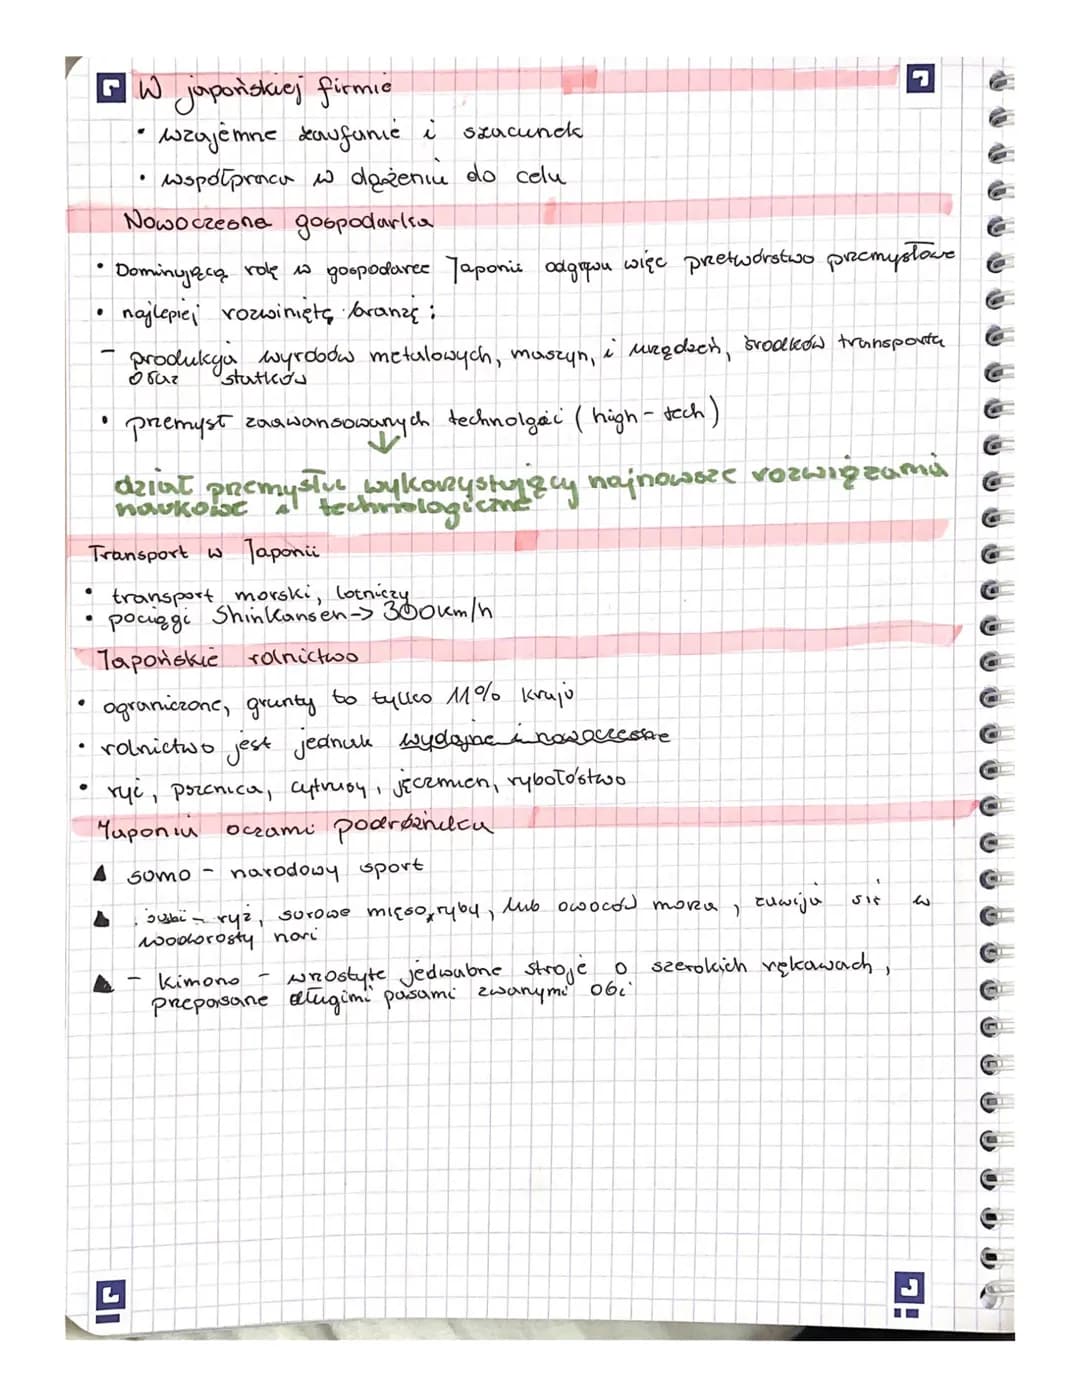 W japońskiej firmie
• wzajemne zaufanie i szacunek
• współpraca w dążeniu do celu
Nowoczesna gospodarka
• Dominującą rolę w gospodarce Japonii odgrywa więc przetwórstwo przemysłowe
• najlepiej rozwiniętą branżę :
- produkcja wyrobów metalowych, maszyn, i urządzeń, środków transportu
oraz statków
• przemysł zaawansowanych technolgii (high-tech)
↓
dział przemysłu wykorzystujący najnowsze rozwiązania
naukowe i technologiczne
Transport w Japonii
• transport morski, lotniczy
• pociągi Shinkansen -> 300km/h
Japońskie rolnictwo
• ograniczone, grunty to tylko 11% kraju
• rolnictwo jest jednak wydajne i nowoczesne
• ryż, pszenica, cytrusy, jęczmien, rybołóstwo
Japonia oczami podróżnika
▲ sumo - narodowy sport
▲ sushi - ryż, surowe mięso, ryby, lub owoców morza, zawija się w
wodorosty nori
▲ - Kimono - wzorzyste jedwabne stroje o szerokich rękawach,
przepasane długimi pasami zwanymi obi